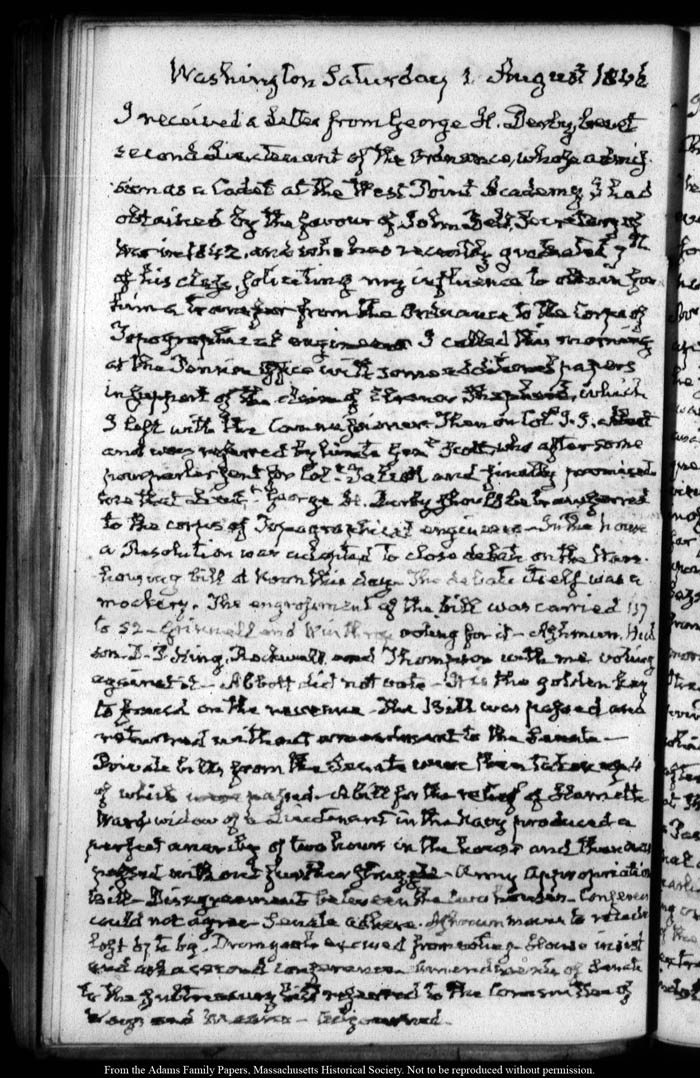 Washington Saturday 1 August 1846
I received a Letter from George H. Derby, brevet
second Lieutenant of the Ordnance, whose admis-
sion as a Cadet at the West Point Academy, I had
obtained by the favour of John Bell, Secretary of
War in 1842, and who has recently graduated 7th
of his class, soliciting my influence to obtain for
him a transfer from the Ordnance to the Corps of
Topographical engineers I called this morning
at the Pension Office with some additional papers
in support of the claim of Eleanor Shepherd, which
I left with the Commissioner. Then on Coll J. J. Abert
and was referred by him to Genl Scott, who after some
pourparler sent for Coll Talcott and finally promised
me that Lieutt George H. Derby should be transferred
to the corps of Topographical engineers – In the house
a Resolution was adopted to close debate on the Ware-
housing bill at Noon this day – The debate itself was a
mockery. The engrossment of the bill was carried 117
to 52 – Grinnell and Winthrop voting for it – Ashmun, Hud
son – D. P. King, Rockwell, and Thompson with me voting
against it – Abbott did not vote – It is the golden key
to fraud on the revenue – The Bill was passed and
returned without amendment to the Senate –
Private bills from the Senate were then taken up 4
of which were passed – A bill for the relief of Harriett
Ward widow of a Lieutenant in the Navy produced a
perfect anarchy of two hours in the house and then was
passed without further struggle – Army Appropriation
Bill – Disagreement between the two houses – Conferees
could not agree – Senate adhere. Ashmun moves to recede
lost 57 to 69. Dromgoole excused from voting – House insist
and ask a second conference – Amendments of Senate
to the Subtreasury bill referred to the Committee of
Ways and Means – Adjourned.
From the Adams Family Papers, Massachusetts Historical Society. Not to be reproduced without permission.